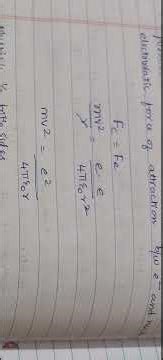 electrostatic force of attraction b/w e⁻ and
Fc = Fe
mv²/r = e·e/4πε₀r²
mv² = e²/4πε₀r
sides